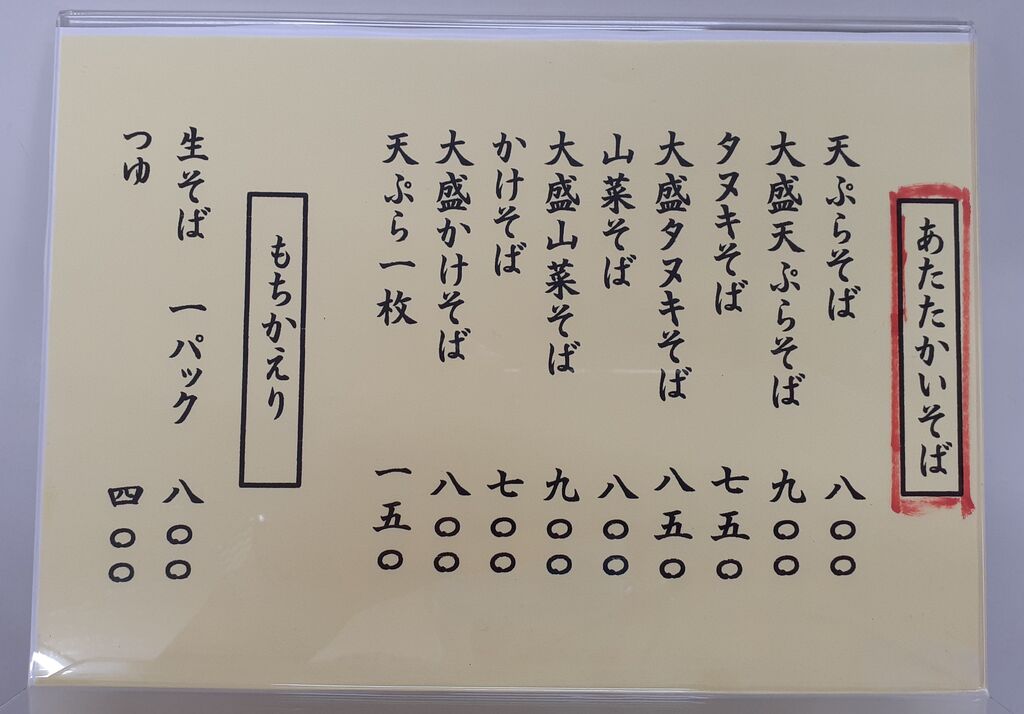 あたたかいそば
天ぷらそば 八〇〇
大盛天ぷらそば 九〇〇
タヌキそば 七五〇
大盛タヌキそば 八五〇
山菜そば 八〇〇
大盛山菜そば 九〇〇
かけそば 七〇〇
大盛かけそば 八〇〇
天ぷら一枚 一五〇
もちかえり
生そば 一パック 八〇〇
つゆ 四〇〇